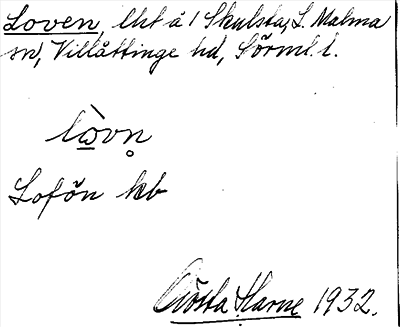 Loven, lht å 1 Skulsta, L. Malma
sn, Villåttinge hd, Sörml. l.
lo᷆vn̥
Lofön kb
Gösta Harne 1932.